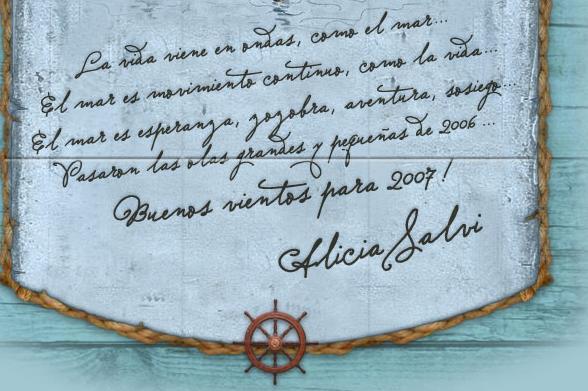 La vida viene en ondas, como el mar...
El mar es movimiento continuo, como la vida...
El mar es esperanza, zozobra, aventura, sosiego...
Pasaron las olas grandes y pequeñas de 2006...
Buenos vientos para 2007!
Alicia Salvi